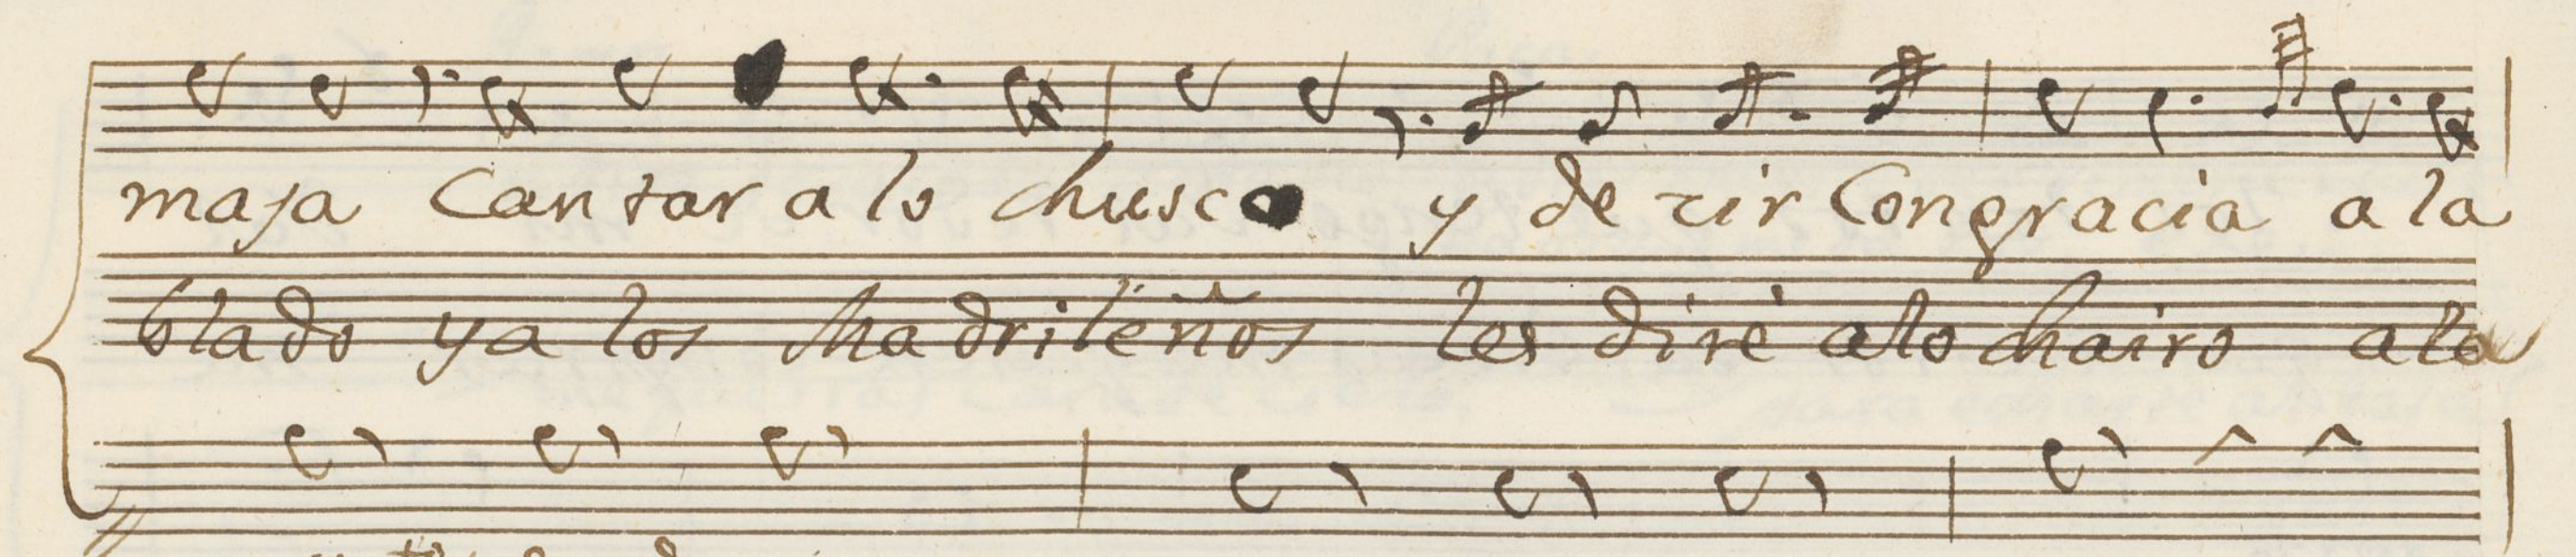 maja Cantar a lo chusco y de cir Con gracia a la
blado y a los Madrileños les diré a lo chairo a la